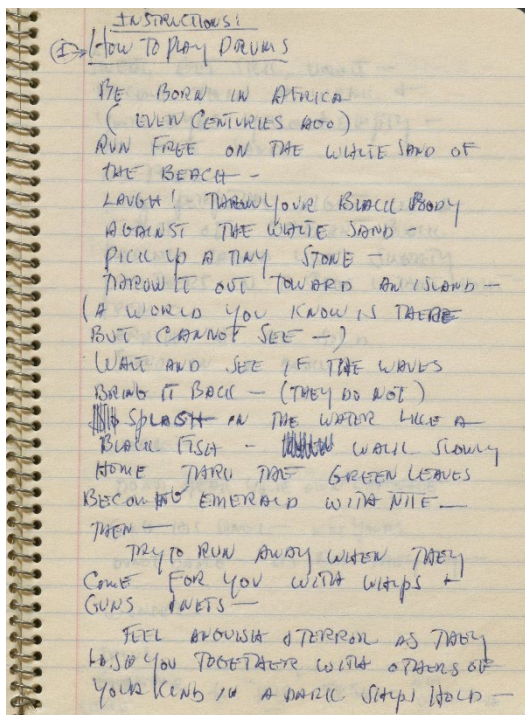 INSTRUCTIONS:
(I) HOW TO PLAY DRUMS
BE BORN IN AFRICA
(EVEN CENTURIES AGO)
RUN FREE ON THE WHITE SAND OF
THE BEACH —
LAUGH! THROW YOUR BLACK BODY
AGAINST THE WHITE SAND —
PICK UP A TINY STONE —
THROW IT OUT TOWARD AN ISLAND —
(A WORLD YOU KNOW IS THERE
BUT CANNOT SEE —)
WAIT AND SEE IF THE WAVES
BRING IT BACK — (THEY DO NOT)
SPLASH IN THE WATER LIKE A
BLACK FISH — WALK SLOWLY
HOME THRU THE GREEN LEAVES
BECOMING EMERALD WITH NITE —
THEN —
TRY TO RUN AWAY WHEN THEY
COME FOR YOU WITH WHIPS +
GUNS + NETS —
FEEL ANGUISH + TERROR AS THEY
LASH YOU TOGETHER WITH OTHERS OF
YOUR KIND IN A DARK SHIPS HOLD —